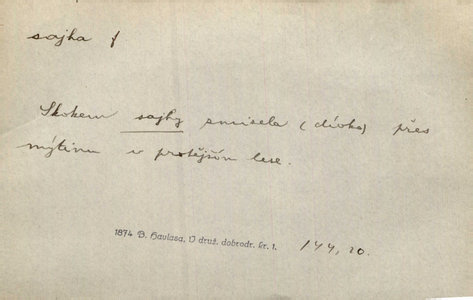 sajha f
Skokem sajhy zmizela (dívka) přes
mýtinu v protějším lese.
1874 B. Havlasa, V druž. dobrodr. kr. 1. 144, 20.